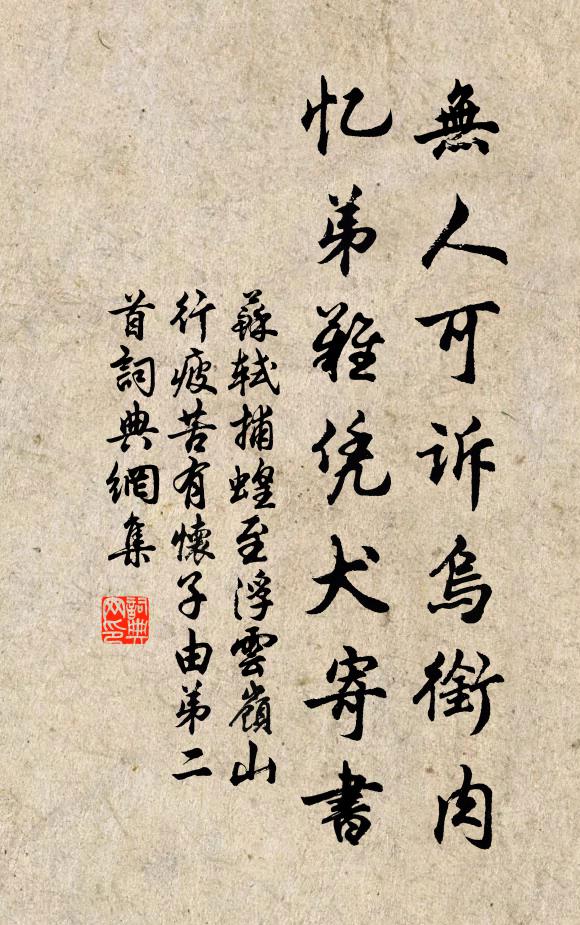 無人可诉烏銜肉
忆弟難凭犬寄書
蘇軾捕蝗至浮雲嶺山
行疲苦有懷子由弟二
首詞典網集
詞典
网印